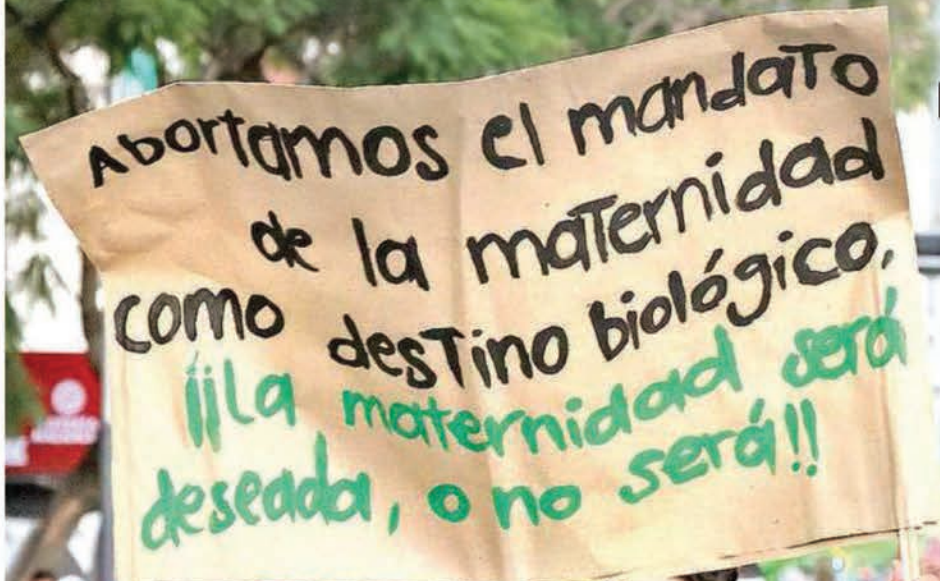 Abortamos el mandato
de la maternidad
como destino biológico.
¡¡La maternidad será
deseada, o no será!!